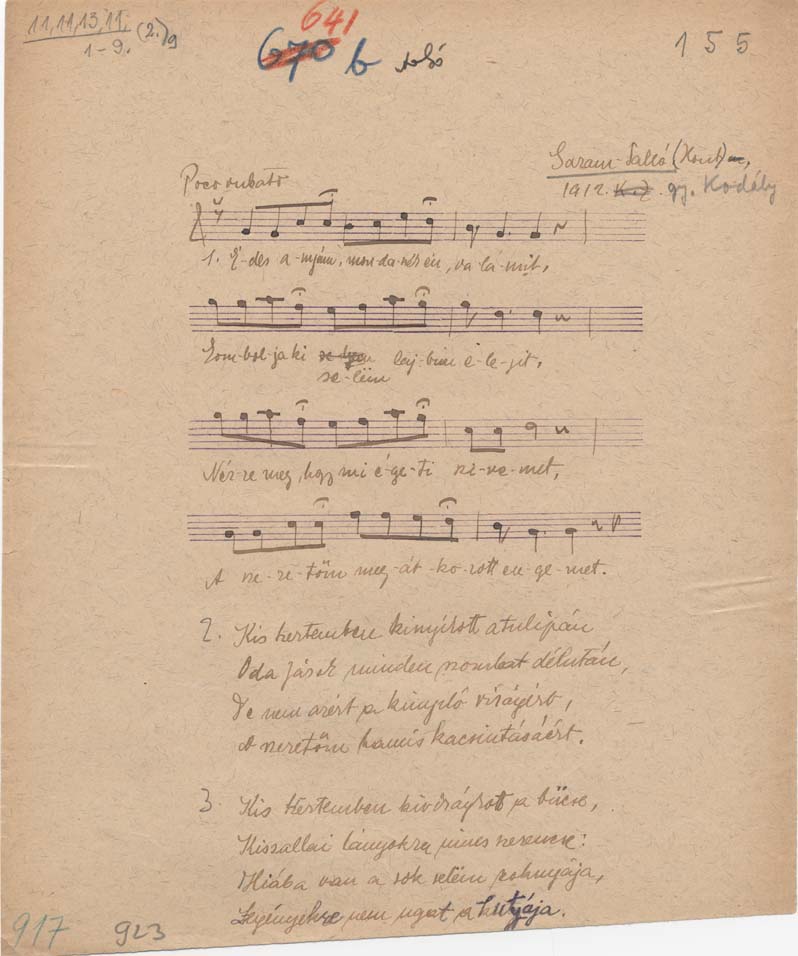 11, 11, 13, 11,
1-9. (2.) 9
641
670 b alsó
155
Garam-Salló (Hont) m,
1912. K. Z. gy. Kodály
Poco rubato
1. É-des a-nyám, mon-da-nék én, va-la-mit,
Gom-bol-ja ki se-lyem laj-bim e-le-jit,
se-lëm
Néz-ze meg, hogy mi é-ge-ti szi-ve-met,
A sze-re-tőm meg-át-ko-zott en-ge-met.
2. Kis kertemben kinyirott a tulipán
Oda járok minden szombat délután,
De nem azért a kinyiló virágért,
A szeretőm hamis kacsintásáért.
3. Kis kertemben kivirágzott a
Kiszallai lányokra nincs szerencse:
Hiába van a sok selëm
Legényekre nem ugat a kutyája.
917 923